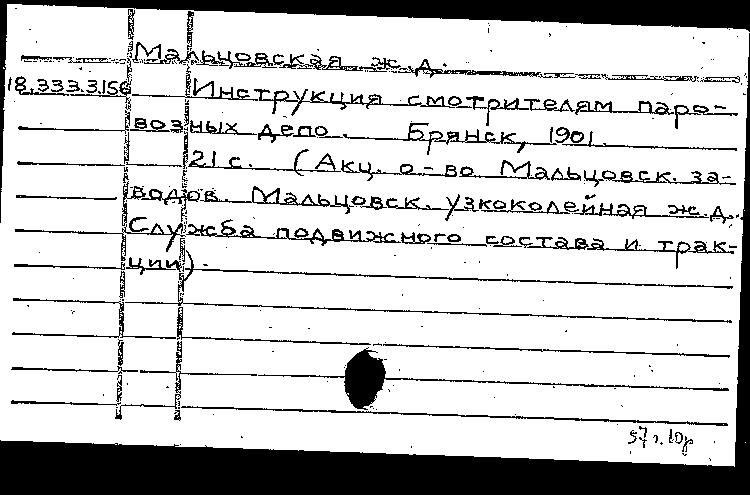 Мальцовская ж.д.
18.333.3.156 Инструкция смотрителям паро-
возных депо. Брянск, 1901.
21 с. (Акц. о-во Мальцовск. за-
водов. Мальцовск. узкоколейная ж.д.
Служба подвижного состава и трак-
ции).
57 г. 10р